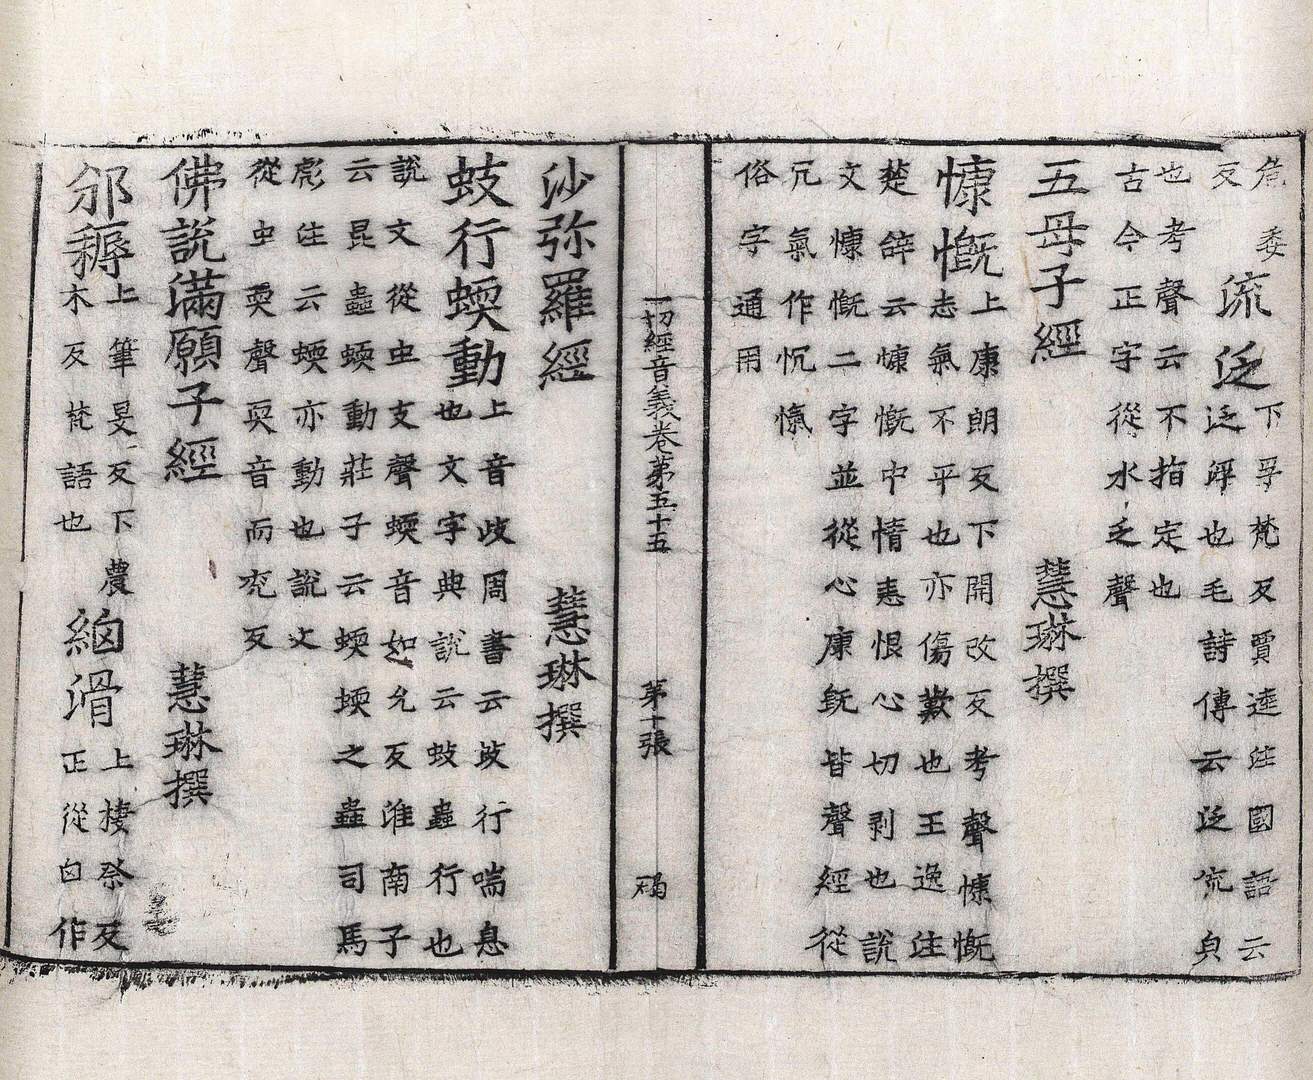 危委
反
流泛
下孚梵反賈逵注國語云
泛浮也毛詩傳云泛流皃
也考聲云不指定也
古今正字從水乏聲
五母子經 慧琳撰
慷慨
上康朗反下開改反考聲慷慨
志氣不平也亦傷歎也王逸注
楚辭云慷慨中情恚恨心切剥也說
文慷慨二字並從心康旣皆聲經從
冗氣作忼愾
俗字通用
一切經音義卷第五十五 第十張
沙弥羅經 慧琳撰
蚑行蝡動
上音歧周書云歧行喘息
也文字典說云蚑蟲行也
說文從虫支聲蝡音如允反淮南子
云昆蟲蝡動莊子云蝡蝡之蟲司馬
彪注云蝡亦動也說文
從虫耎聲耎音而兖反
佛說滿願子經 慧琳撰
邠耨
上筆旻反下農
木反梵語也
細滑
上棲祭反
正從囟作